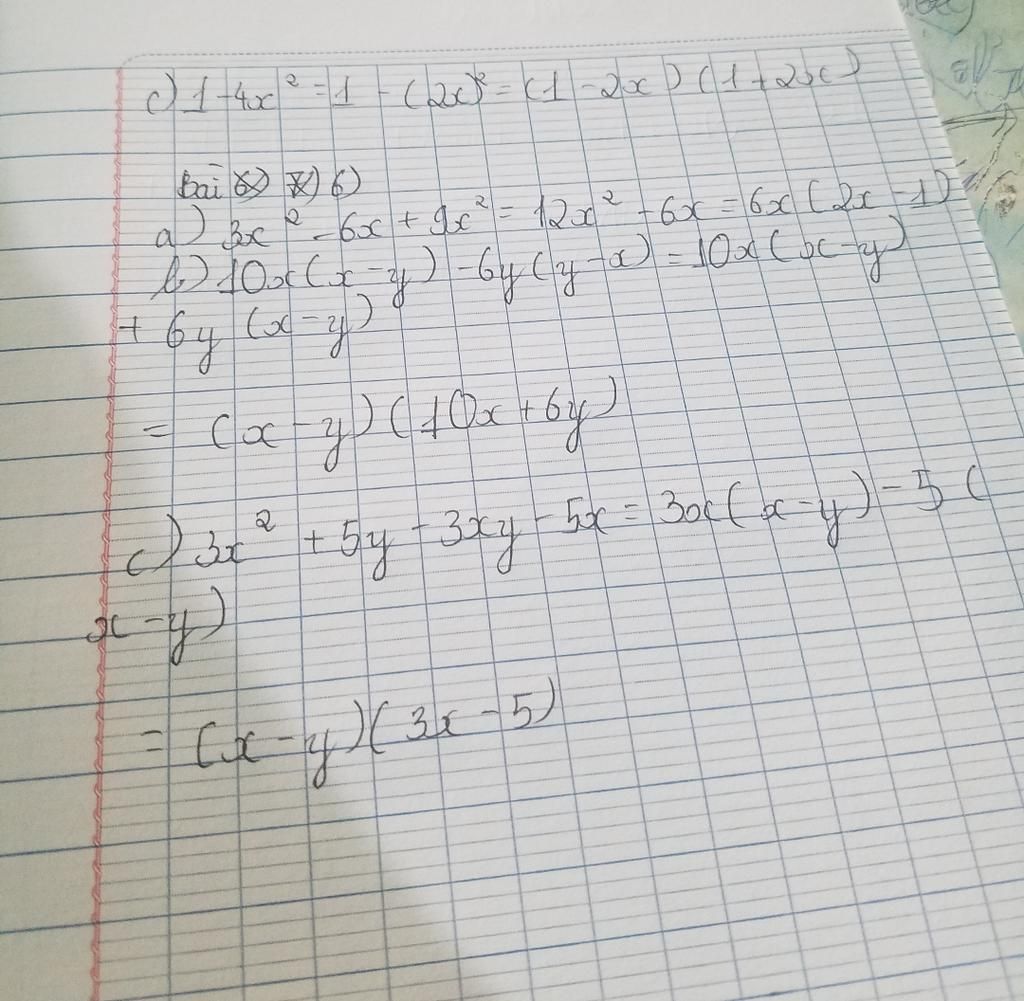 c) 1 - 4x² = 1 - (2x)² = (1 - 2x) (1 + 2x)
bài 6) 7) 6)
a) 3x² - 6x + 9x² = 12x² - 6x = 6x (2x - 1)
b) 10x (x - y) - 6y (y - x) = 10x (x - y)
+ 6y (x - y)
= (x - y) (10x + 6y)
c) 3x² + 5y - 3xy - 5x = 3x (x - y) - 5 (
x - y)
= (x - y) (3x - 5)